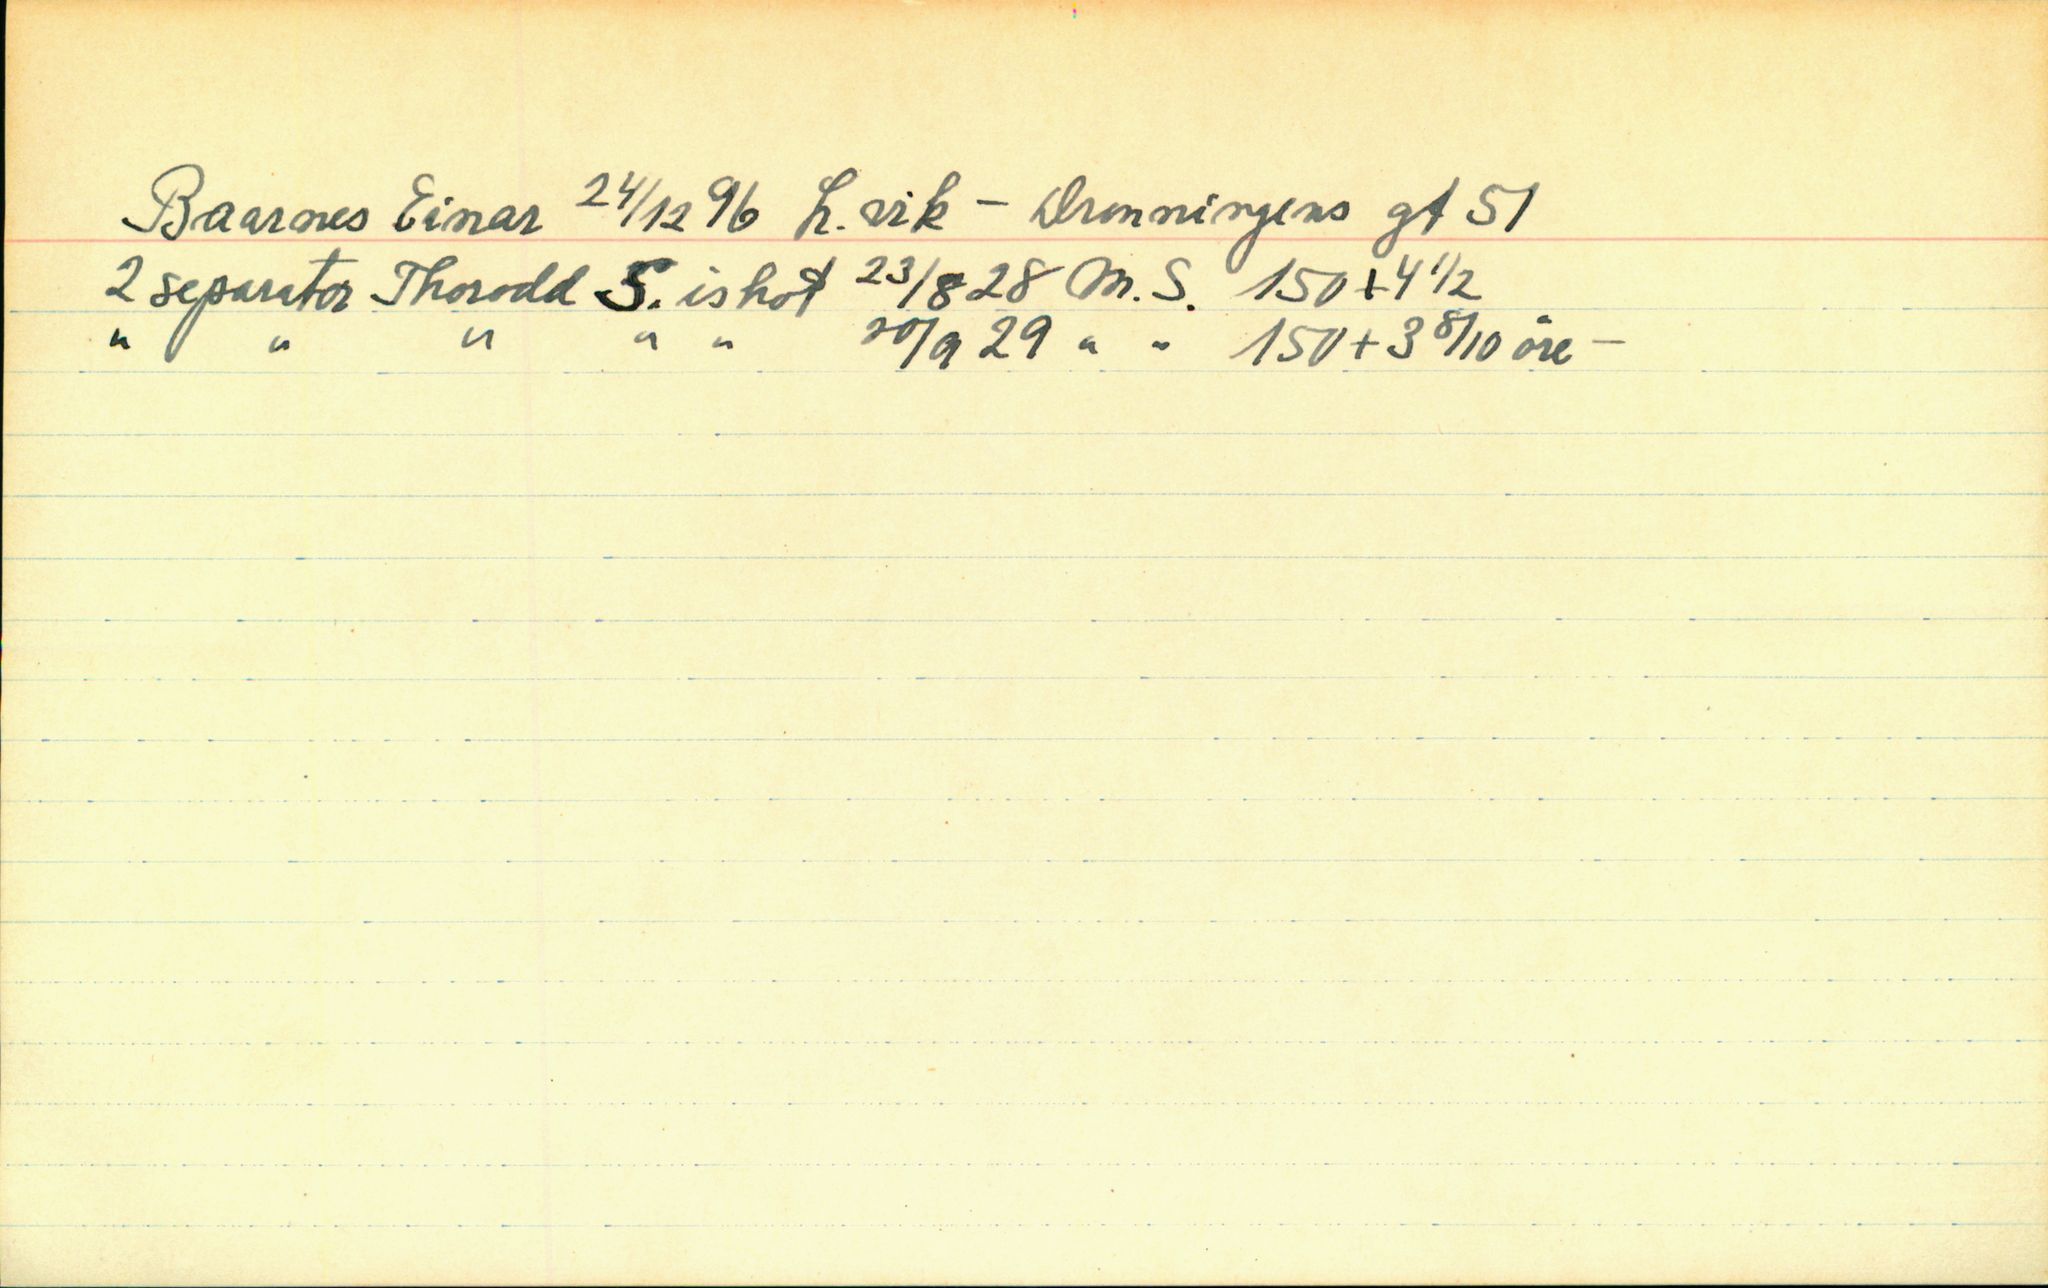 Baarnes Einar 24/12 96 L. vik - Dronningens gt 51
2 separator Thorodd S. ishot 23/8 28 M. S. 150 + 4 1/2
" " " " " 20/9 29 " " 150 + 3 8/10 öre -